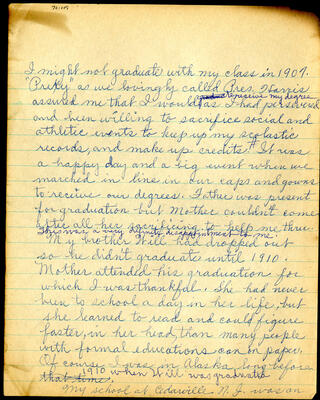 I might not graduate with my class in 1907.
"Prexy" as we lovingly called Pres. Harris
receive my degree
assured me that I would as I had persevered
and been willing to sacrifice social and
athletic events to keep up my scolastic
records, and make up credits." It was
a happy day and a big event when we
marched in line in our caps and gowns
to receive our degrees. Father was present
for graduation but Mother couldn't come
after all her sacrificing to help me thru.
This was a very great disappointment to me.
My brother Will had dropped out
so he didn't graduate until 1910.
Mother attended his graduation for
which I was thankful. She had never
been to school a day in her life, but
she learned to read and could figure
faster, in her head, than many people
with formal educations can on paper.
Of course I was in Alaska long before
1910 when Will was graduated.
that time.
My school at Cedarville N. J. was on